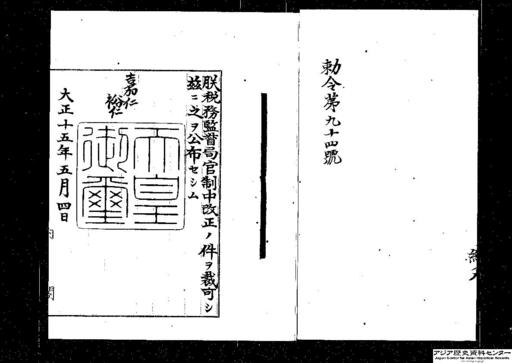 勅令第九十四號
朕税務監督局官制中改正ノ件ヲ裁可シ
茲ニ之ヲ公布セシム
嘉仁
裕仁
天皇
御璽
大正十五年五月四日
内閣
アジア歴史資料センター
Japan Center for Asian Historical Records